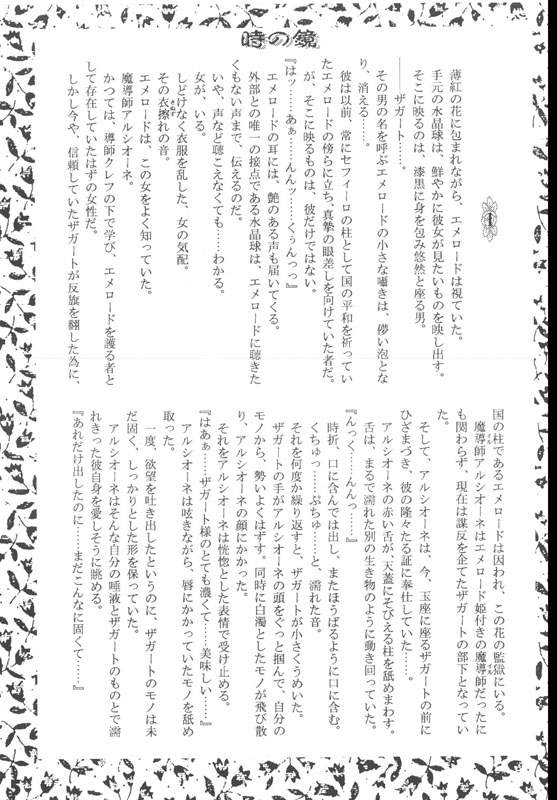 時の鏡
1
薄紅の花に包まれながら、エメロードは視ていた。
手元の水晶球は、鮮やかに彼女が見たいものを映し出す。
そこに映るのは、漆黒に身を包み悠然と座る男。
――ザガート……。
その男の名を呼ぶエメロードの小さな囁きは、儚い泡とな
り、消える……。
彼は以前、常にセフィーロの柱として国の平和を祈ってい
たエメロードの傍らに立ち、真摯の眼差しを向けていた者だ。
が、そこに映るものは、彼だけではない。
『はッ……あぁ……んんッ……くぅんっっ』
エメロードの耳には、艶のある声も届いてくる。
外部との唯一の接点である水晶球は、エメロードに聴きた
くもない声まで、伝えるのだ。
いや、声など聴こえなくても……わかる。
女が、いる。
しどけなく衣服を乱した、女の気配。
その衣擦れの音。
エメロードは、この女をよく知っていた。
魔導師アルシオーネ。
かつては、導師クレフの下で学び、エメロードを護る者と
して存在していたはずの女性だ。
しかし今や、信頼していたザガートが反旗を翻した為に、
国の柱であるエメロードは囚われ、この花の監獄にいる。
魔導師アルシオーネはエメロード姫付きの魔導師だったに
も関わらず、現在は謀反を企てたザガートの部下となってい
た。
そして、アルシオーネは、今、玉座に座るザガートの前に
ひざまづき、彼の隆々たる証に奉仕していた……。
アルシオーネの赤い舌が、天蓋にそびえる柱を舐めまわす。
舌は、まるで濡れた別の生き物のように動き回っていた。
『んっく……んんっ……』
時折、口に含んでは出し、またほうばるように口に含む。
くちゅっ……ぷちゅ……と、濡れた音。
それを何度か繰り返すと、ザガートが小さくうめいた。
ザガートの手がアルシオーネの頭をぐっと掴んで、自分の
モノから、勢いよくはずす。同時に白濁としたモノが飛び散
り、アルシオーネの顔にかかった。
それをアルシオーネは恍惚とした表情で受け止める。
『はあぁ……ザガート様のとても濃くて……美味しい……』
アルシオーネは呟きながら、唇にかかっていたモノを舐め
取った。
一度、欲望を吐き出したというのに、ザガートのモノは未
だ固く、しっかりとした形を保っていた。
アルシオーネはそんな自分の唾液とザガートのものとで濡
れきった彼自身を愛しそうに眺める。
『あれだけ出したのに……まだこんなに固くて……』